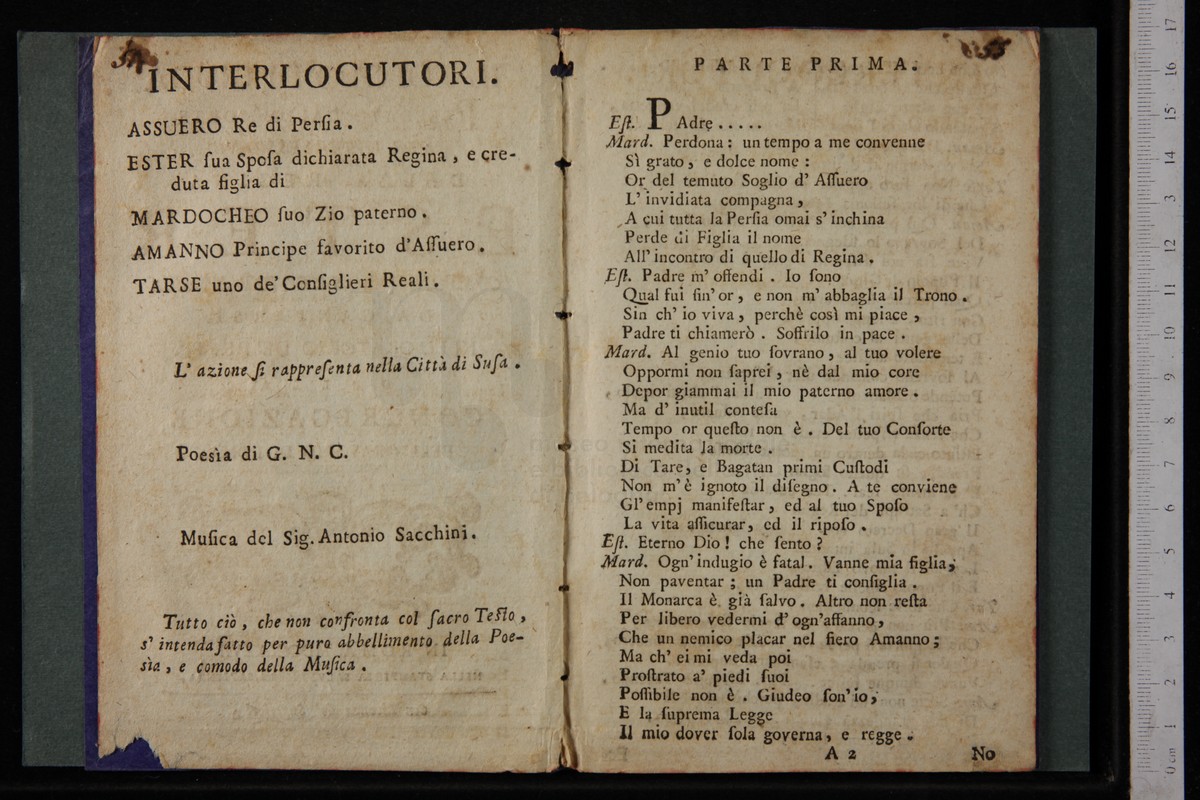 INTERLOCUTORI.
ASSUERO Re di Perſia.
ESTER ſua Spoſa dichiarata Regina, e cre-
duta figlia di
MARDOCHEO ſuo Zio paterno.
AMANNO Principe favorito d'Aſſuero.
TARSE uno de' Conſiglieri Reali.
L' azione ſi rappreſenta nella Città di Suſa.
Poesìa di G. N. C.
Muſica del Sig. Antonio Sacchini.
Tutto ciò, che non confronta col ſacro Teſto,
s' intenda fatto per puro abbellimento della Poe-
sìa, e comodo della Muſica.
PARTE PRIMA.
Eſt. PAdre.....
Mard. Perdona: un tempo a me convenne
Sì grato, e dolce nome:
Or del temuto Soglio d' Aſſuero
L' invidiata compagna,
A cui tutta la Perſia omai s' inchina
Perde di Figlia il nome
All' incontro di quello di Regina.
Eſt. Padre m' offendi. Io ſono
Qual fui ſin' or, e non m' abbaglia il Trono.
Sin ch' io viva, perchè così mi piace,
Padre ti chiamerò. Soffrilo in pace.
Mard. Al genio tuo ſovrano, al tuo volere
Oppormi non ſaprei, nè dal mio core
Depor giammai il mio paterno amore.
Ma d' inutil conteſa
Tempo or queſto non è. Del tuo Conſorte
Si medita la morte.
Di Tare, e Bagatan primi Cuſtodi
Non m' è ignoto il diſegno. A te conviene
Gl' empj manifeſtar, ed al tuo Spoſo
La vita aſſicurar, ed il ripoſo.
Eſt. Eterno Dio! che ſento?
Mard. Ogn' indugio è fatal. Vanne mia figlia,
Non paventar; un Padre ti conſiglia.
Il Monarca è già ſalvo. Altro non reſta
Per libero vedermi d' ogn'affanno,
Che un nemico placar nel fiero Amanno;
Ma ch' ei mi veda poi
Proſtrato a' piedi ſuoi
Poſſibile non è. Giudeo ſon' io,
E la ſuprema Legge
Il mio dover ſola governa, e regge.
A 2 No